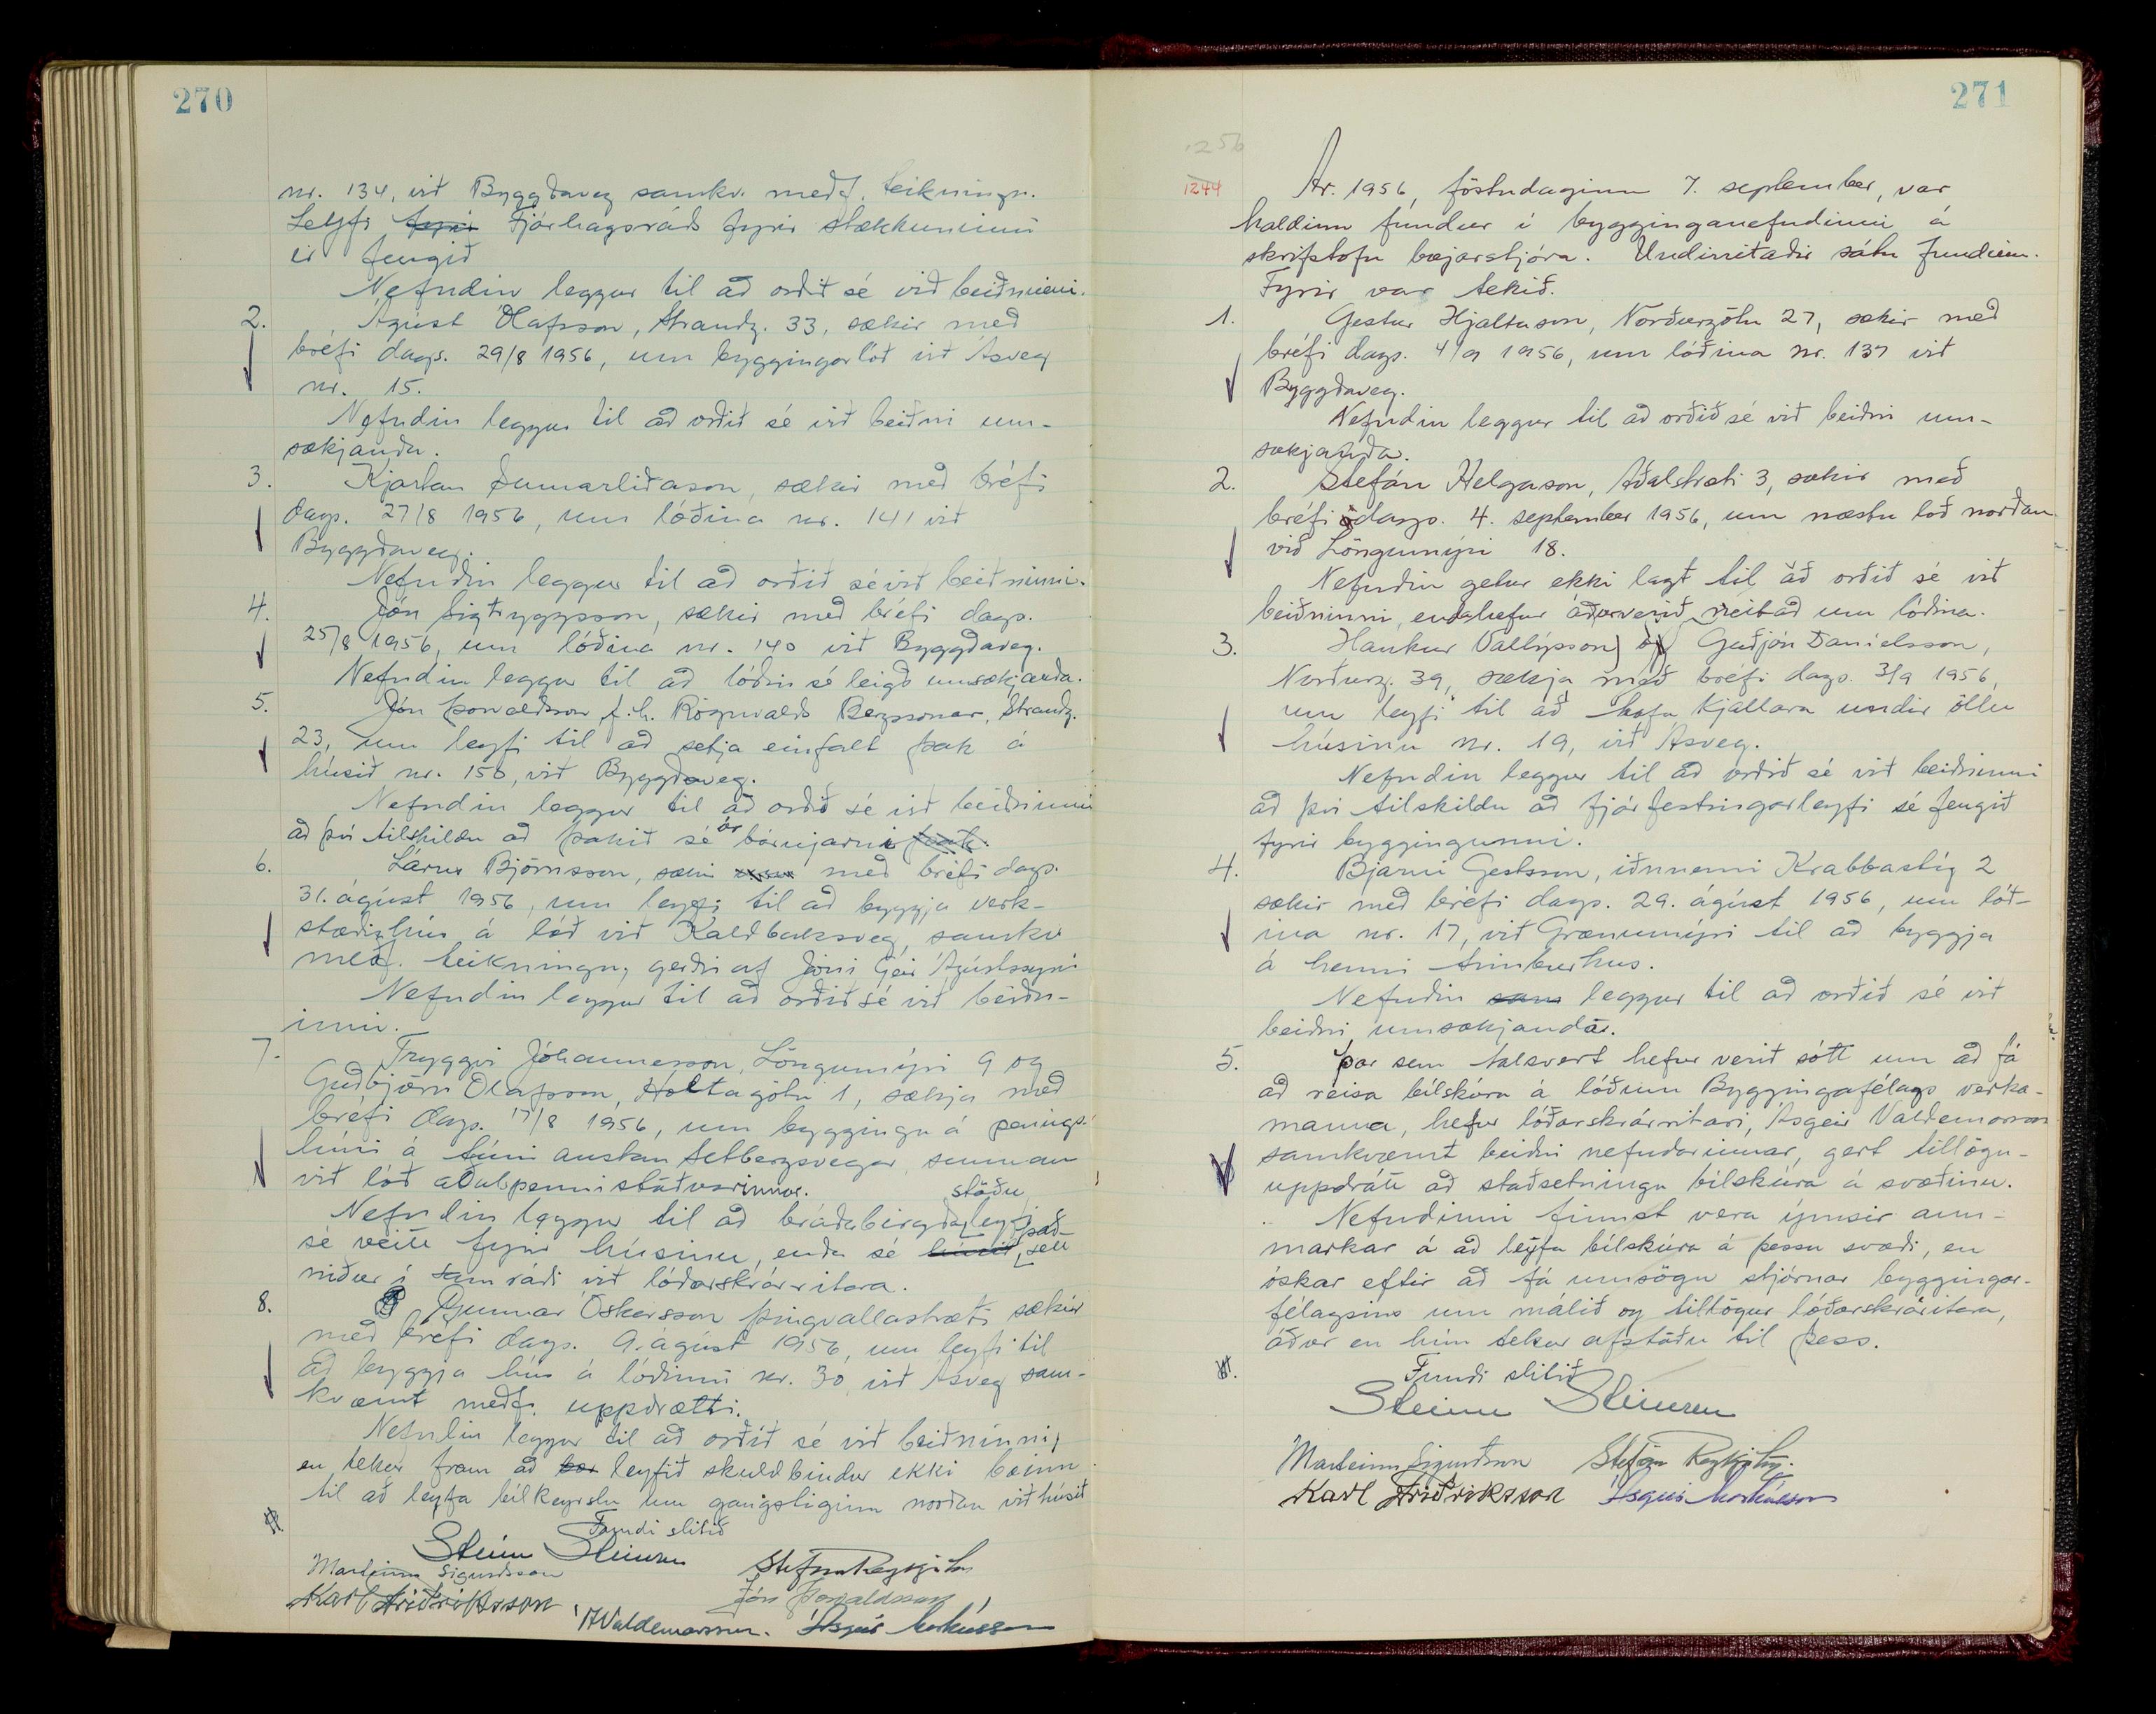 270
nr. 134, við Byggðaveg samkv. meðf. teikningu.
Leyfi fyrir Fjárhagsráðs fyrir stækkuninni
er fengið
Nefndin leggur til að orðið sé við beiðninni.
2. Ágúst Ólafsson, Strandg. 33, sækir með
bréfi dags. 29/8 1956, um byggingarlóð við Ásveg
nr. 15.
Nefndin leggur til að orðið sé við beiðni um-
sækjanda.
3. Kjartan Sumarliðason, sækir með bréfi
dags. 27/8 1956, um lóðina nr. 141 við
Byggðaveg.
Nefndin leggur til að orðið sé við beiðninni.
4. Jón Sigtryggsson, sækir með bréfi dags.
25/8 1956, um lóðina nr. 140 við Byggðaveg.
Nefndin leggur til að lóðin sé leigð umsækjanda.
5. Jón Þorvaldsson f.h. Rögnvalds Bergssonar, Strandg.
23, um leyfi til að setja einfalt þak á
húsið nr. 150, við Byggðaveg.
Nefndin leggur til að orðið sé við beiðninni
að því tilskildu að þakið sé úr bárujárni
6. Lárus Björnsson, sækir með bréfi dags.
31. ágúst 1956, um leyfi til að byggja verk-
stæðishús á lóð við Kaldbaksveg, samkv
meðf. teikningu, gerðri af Jóni Geir Ágústssyni
Nefndin leggur til að orðið sé við beiðn-
inni.
7. Tryggvi Jóhannesson, Löngumýri 9 og
Guðbjörn Ólafsson, Holtagötu 1, sækja með
bréfi dags. 17/8 1956, um byggingu á penings-
húsi á túni austan Setbergsvegar, sunnan
við lóð aðalspennistöðvarinnar.
Nefndin leggur til að bráðabirgðastöðuleyfi
sé veitt fyrir húsinu, enda sé það sett
niður í samráði við lóðarskrárritara.
8. Gunnar Óskarsson Þingvallastræti sækir
með bréfi dags. 9. ágúst 1956, um leyfi til
að byggja hús á lóðinni nr. 30 við Ásveg sam-
kvæmt meðf. uppdrætti.
Nefndin leggur til að orðið sé við beiðninni,
en tekur fram að leyfið skuldbindur ekki bæinn
til að leyfa bílkeyrslu um gangstíginn norðan við húsið
Fundi slitið
Steinn Steinsen
Marteinn Sigurðsson Stefán Reykjalín
Karl Friðriksson Jón Þorvaldsson
ÁValdemarsson. Ásgeir Markússon
271
1256
1244 Ár. 1956, föstudaginn 7. september, var
haldinn fundur í bygginganefndinni á
skrifstofu bæjarstjóra. Undirritaðir sátu fundinn.
Fyrir var tekið.
1. Gestur Hjaltason, Norðurgötu 27, sækir með
bréfi dags. 4/9 1956, um lóðina nr. 137 við
Byggðaveg.
Nefndin leggur til að orðið sé við beiðni um-
sækjanda.
2. Stefán Helgason, Aðalstræti 3, sækir með
bréfi dags. 4. september 1956, um næstu lóð norðan
við Löngumýri 18.
Nefndin getur ekki lagt til að orðið sé við
beiðninni, enda hefur áður verið neitað um lóðina.
3. Haukur Vallýsson og Guðjón Daníelsson,
Norðurg. 39, sækja með bréfi dags. 3/9 1956,
um leyfi til að hafa kjallara undir öllu
húsinu nr. 19, við Ásveg.
Nefndin leggur til að orðið sé við beiðninni
að því tilskildu að fjárfestingarleyfi sé fengið
fyrir byggingunni.
4. Bjarni Gestsson, iðnnemi Krabbastíg 2
sækir með bréfi dags. 29. ágúst 1956, um lóð-
ina nr. 17, við Grænumýri til að byggja
á henni timburhús.
Nefndin leggur til að orðið sé við
beiðni umsækjandar.
5. Þar sem talsvert hefur verið sótt um að fá
að reisa bílskúra á lóðum Byggingafélags verka-
manna, hefur lóðarskrárritari, Ásgeir Valdemarsson
samkvæmt beiðni nefndarinnar, gert tillögu-
uppdrátt að staðsetningu bílskúra á svæðinu.
Nefndinni finnst vera ýmsir ann-
markar á að leyfa bílskúra á þessu svæði, en
óskar eftir að fá umsögn stjórnar byggingar-
félagsins um málið og tillögur lóðarskrárritara,
áður en hún tekur afstöðu til þess.
Fundi slitið
Steinn Steinsen
Marteinn Sigurðsson Stefán Reykjalín.
Karl Friðriksson Ásgeir Markússon